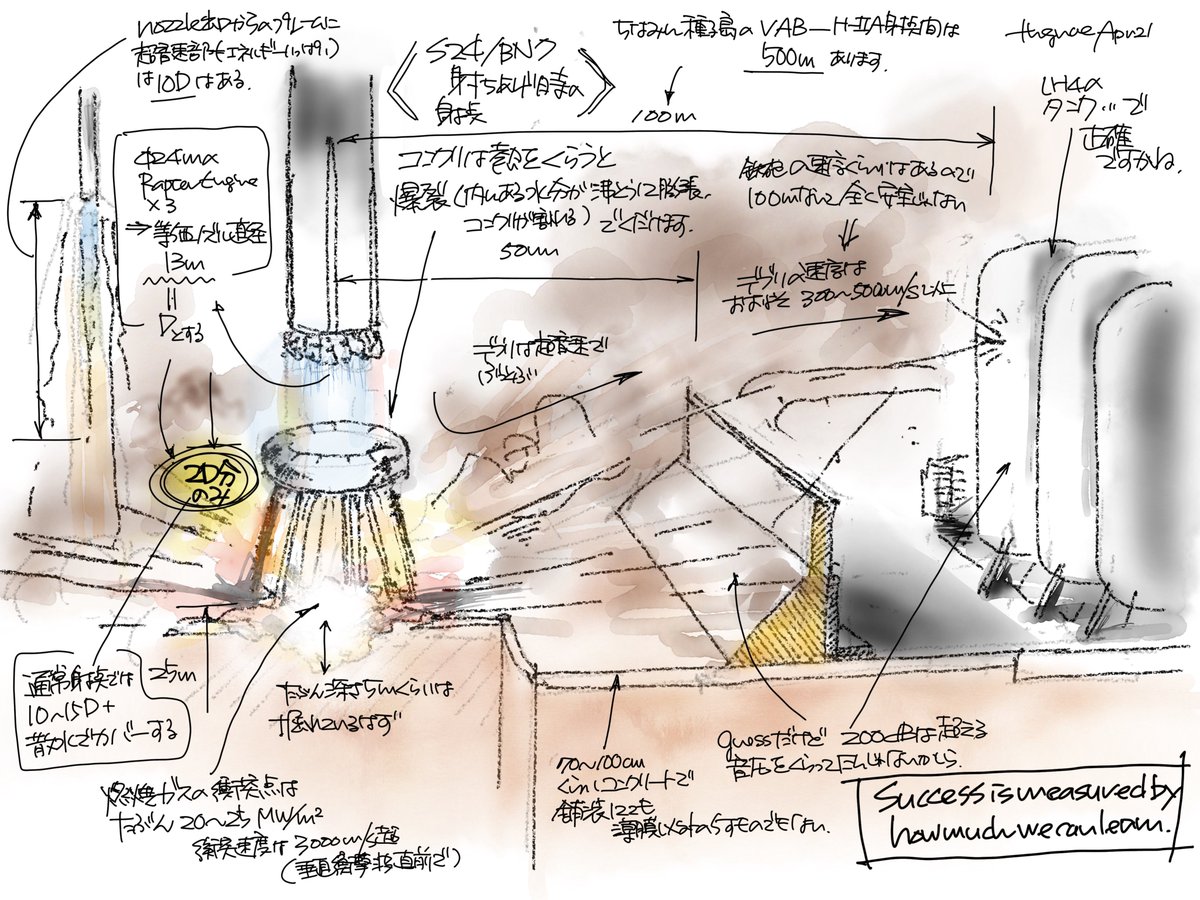 nozzle出口からのプルームに
超音速部(エネルギーいっぱい)
は10Dはある.
S24/BN7
射ち上げ時の
射点
ちなみに種子島のVAB—H-IIA射点間は
500mあります.
100m
LH4の
タンクってで
正確
ですかね.
Φ24mの
Raptor Engine
×3
⇒等価ノズル直径
13m
||
Dとする
コンクリは熱をくらうと
爆裂(内にある水分が沸とうして膨張,
コンクリが割れる)でくだけます.
50m
鉄砲の速度くらいはあるので
100mなんて全く安全じゃない
⇓
デブリの速度は
おおよそ300〜500m/s以上
デブリは超音速で
ぶっとぶ
2D分
のみ
通常射点では
10〜15D+
散水でカバーする
25m
たぶん深さ5mくらいは
掘れているはず
燃焼ガスの衝突点は
たぶん20〜25MW/m²
衝突速度は3000m/s超
(垂直衝撃波直前で)
70〜100cm
くらいコンクリートで
舗装してても
薄膜
guessだけど200dBは超える
音圧をくらって
Success is measured by
how much we can learn.